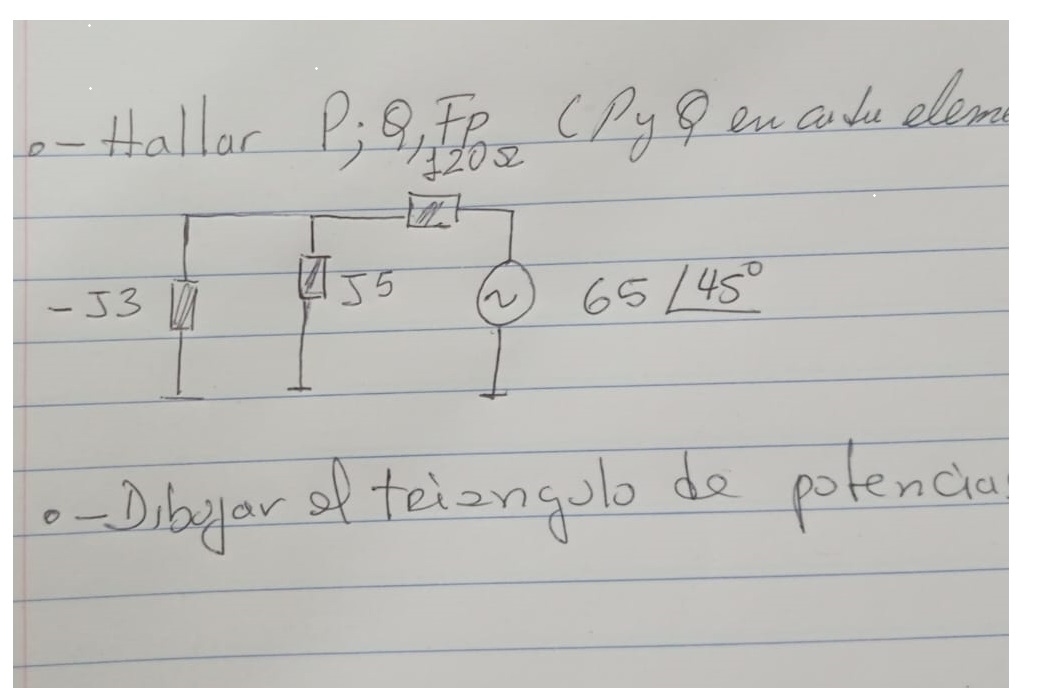 o- Hallar P; Q, Fp (P y Q en cada eleme
120Ω
-J3
J5
~
65 ∠45°
o- Dibujar el triangulo de potencia